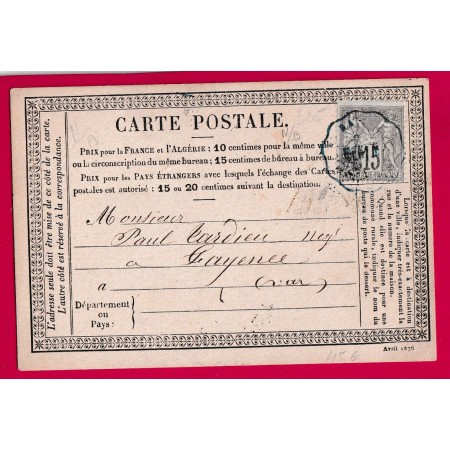 CARTE POSTALE.
PRIX pour la FRANCE et l'ALGÉRIE: 10 centimes pour la même ville
ou la circonscription du même bureau; 15 centimes de bureau à bureau.
PRIX pour les PAYS ÉTRANGERS avec lesquels l'échange des Cartes
postales est autorisé: 15 ou 20 centimes suivant la destination.
L'adresse seule doit être mise de ce côté de la carte.
L'autre côté est réservé à la correspondance.
15
Monsieur
Paul Tardieu Negt
à Fayence
à (Var)
Département
ou
Pays:
Lorsque la carte est à destination
d'une ville, indiquer très-exactement la
rue et le numéro de la maison.
Quand elle est destinée pour une
commune rurale, indiquer le nom du
bureau de poste qui la dessert.
Avril 1876
45€